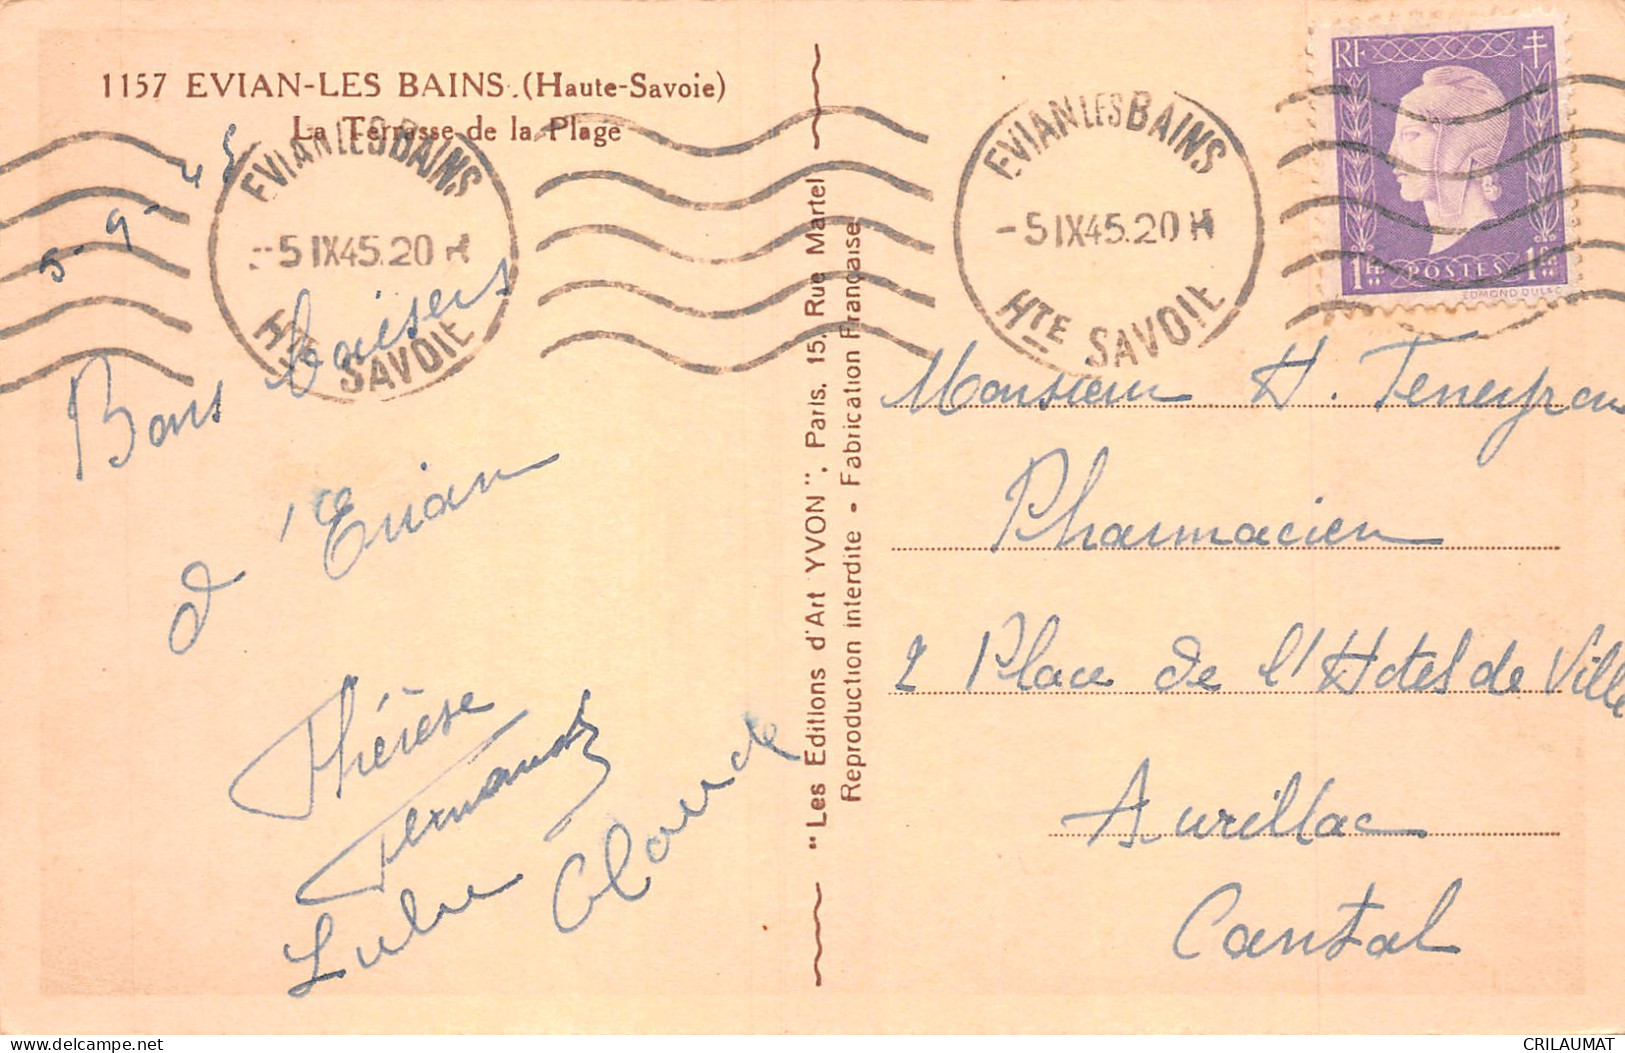 1157 EVIAN-LES BAINS.(Haute-Savoie)
La Terrasse de la Plage
5-9-45
EVIAN LES BAINS
-5 IX45.20 H
HTE SAVOIE
Bons baisers
d'Evian
Thérèse
Fernande
Claude
"Les Editions d'Art YVON", Paris, 15, Rue Martel
Reproduction interdite - Fabrication Française
EVIAN LES BAINS
-5 IX45.20 H
HTE SAVOIE
RF
1F POSTES 1F
EDMOND DULAC
Monsieur H.
Pharmacien
2 Place de l'Hotel de Ville
Aurillac
Cantal
CRILAUMAT